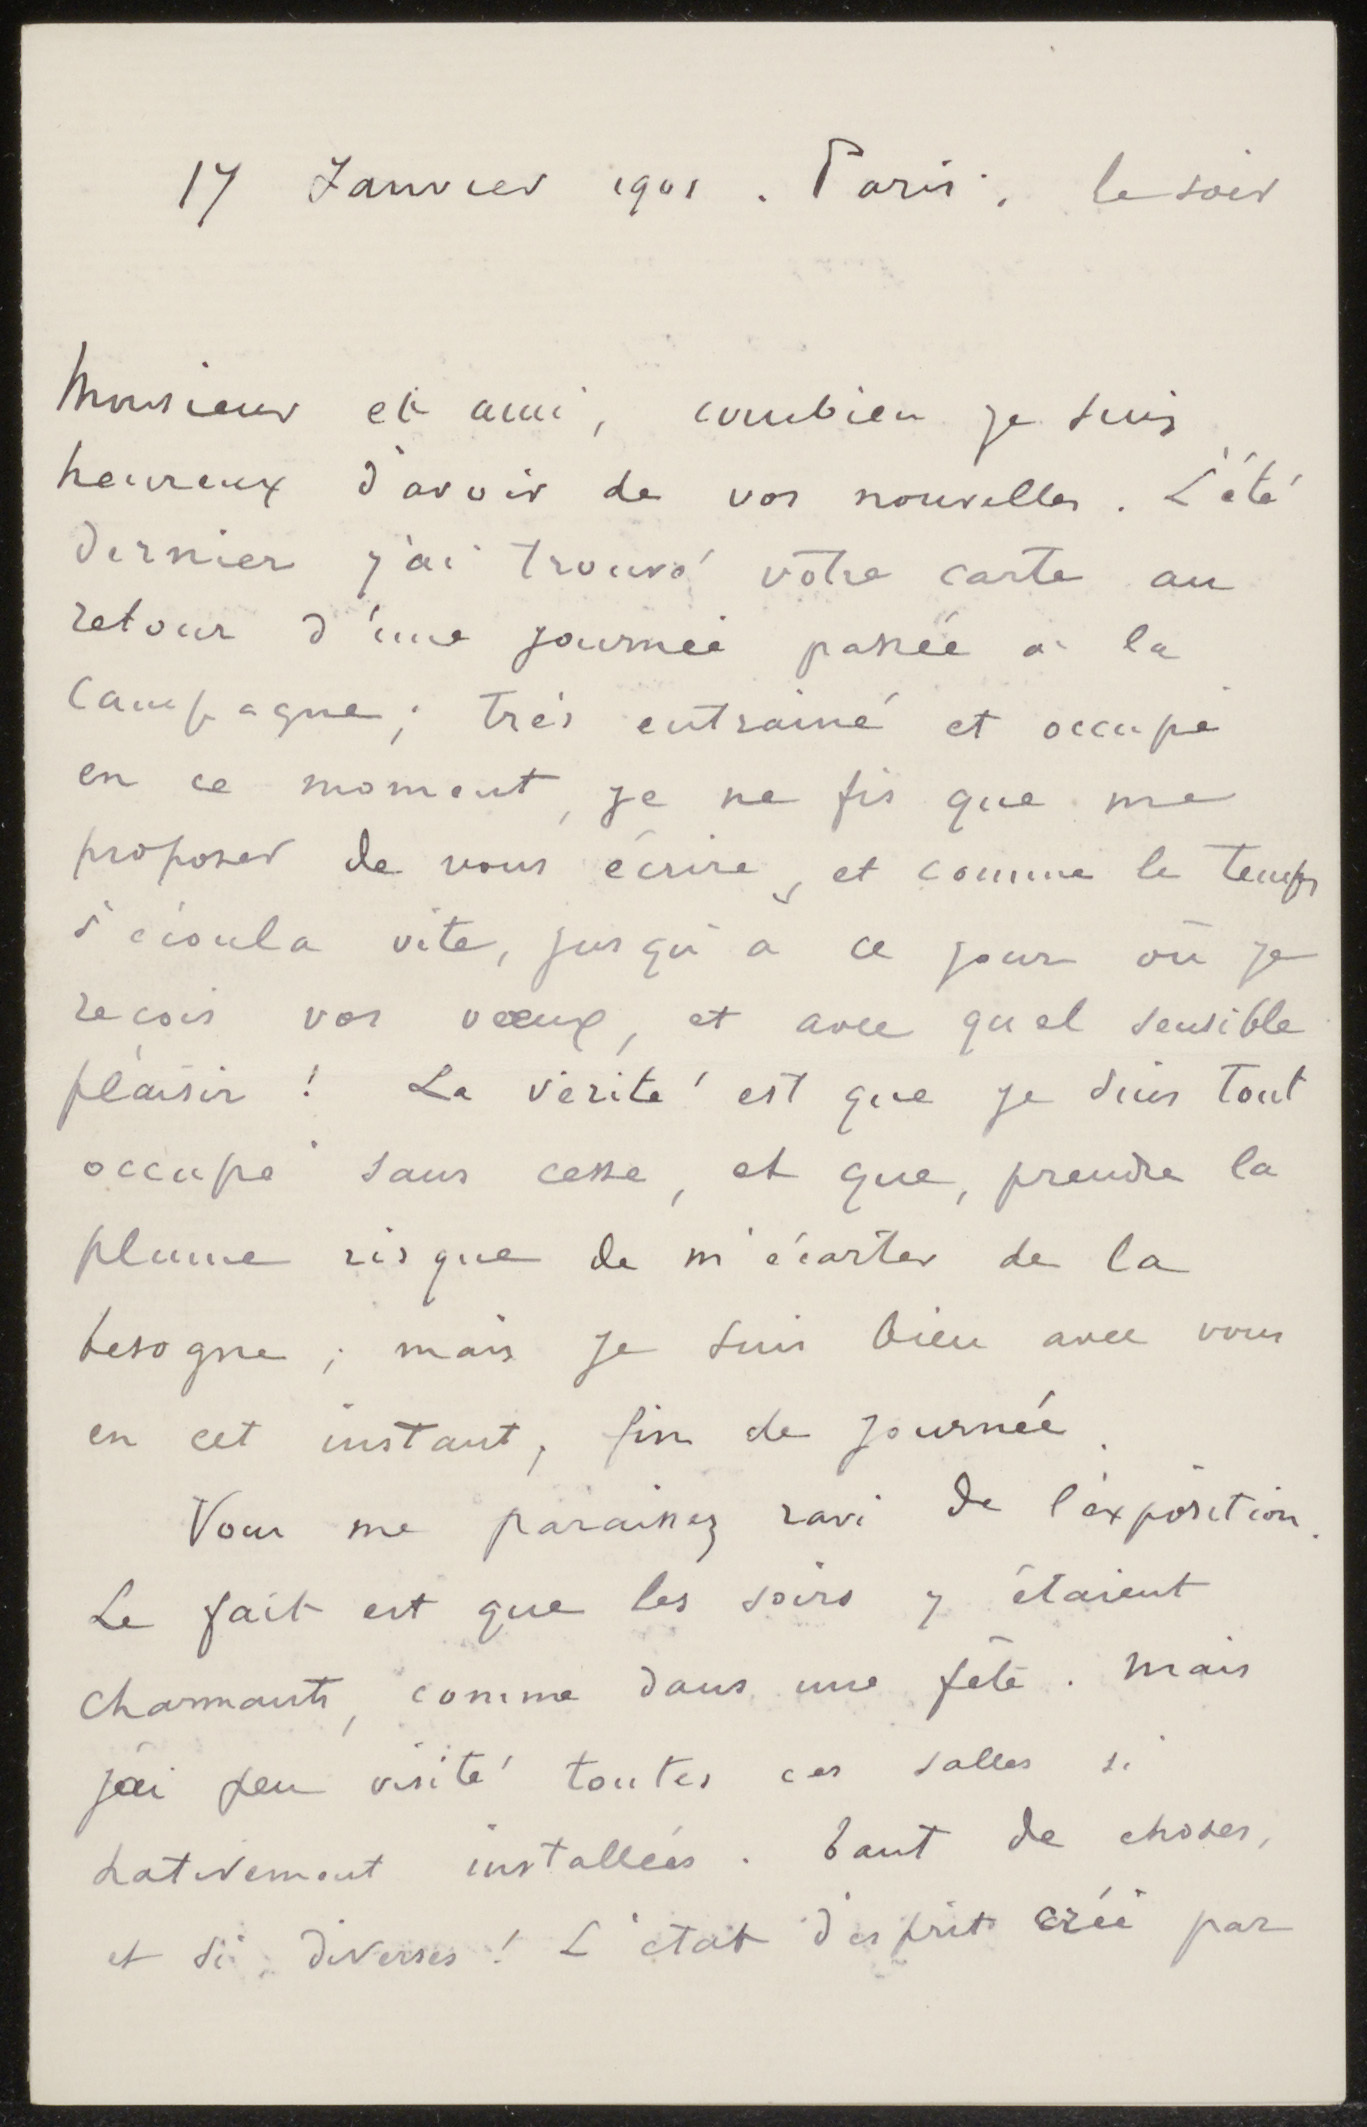 17 Janvier 1901. Paris, le soir
Monsieur et ami, combien je suis
heureux d'avoir de vos nouvelles. L'été
dernier j'ai trouvé votre carte au
retour d'une journée passée à la
campagne; très entrainé et occupé
en ce moment, je ne fis que me
proposer de vous écrire, et comme le temps
s'écoula vite, jusqu'à ce jour où je
recois vos vœux, et avec quel sensible
plaisir! La vérité est que je suis tout
occupé sans cesse, et que, prendre la
plume risque de m'écarter de la
besogne; mais je suis bien avec vous
en cet instant, fin de journée.
Vous me paraissez ravi de l'exposition.
Le fait est que les soirs y étaient
charmants, comme dans une fête. Mais
j'ai peu visité toutes ces salles si
hativement installées. Tant de choses,
et si diverses! L'état d'esprit créé par